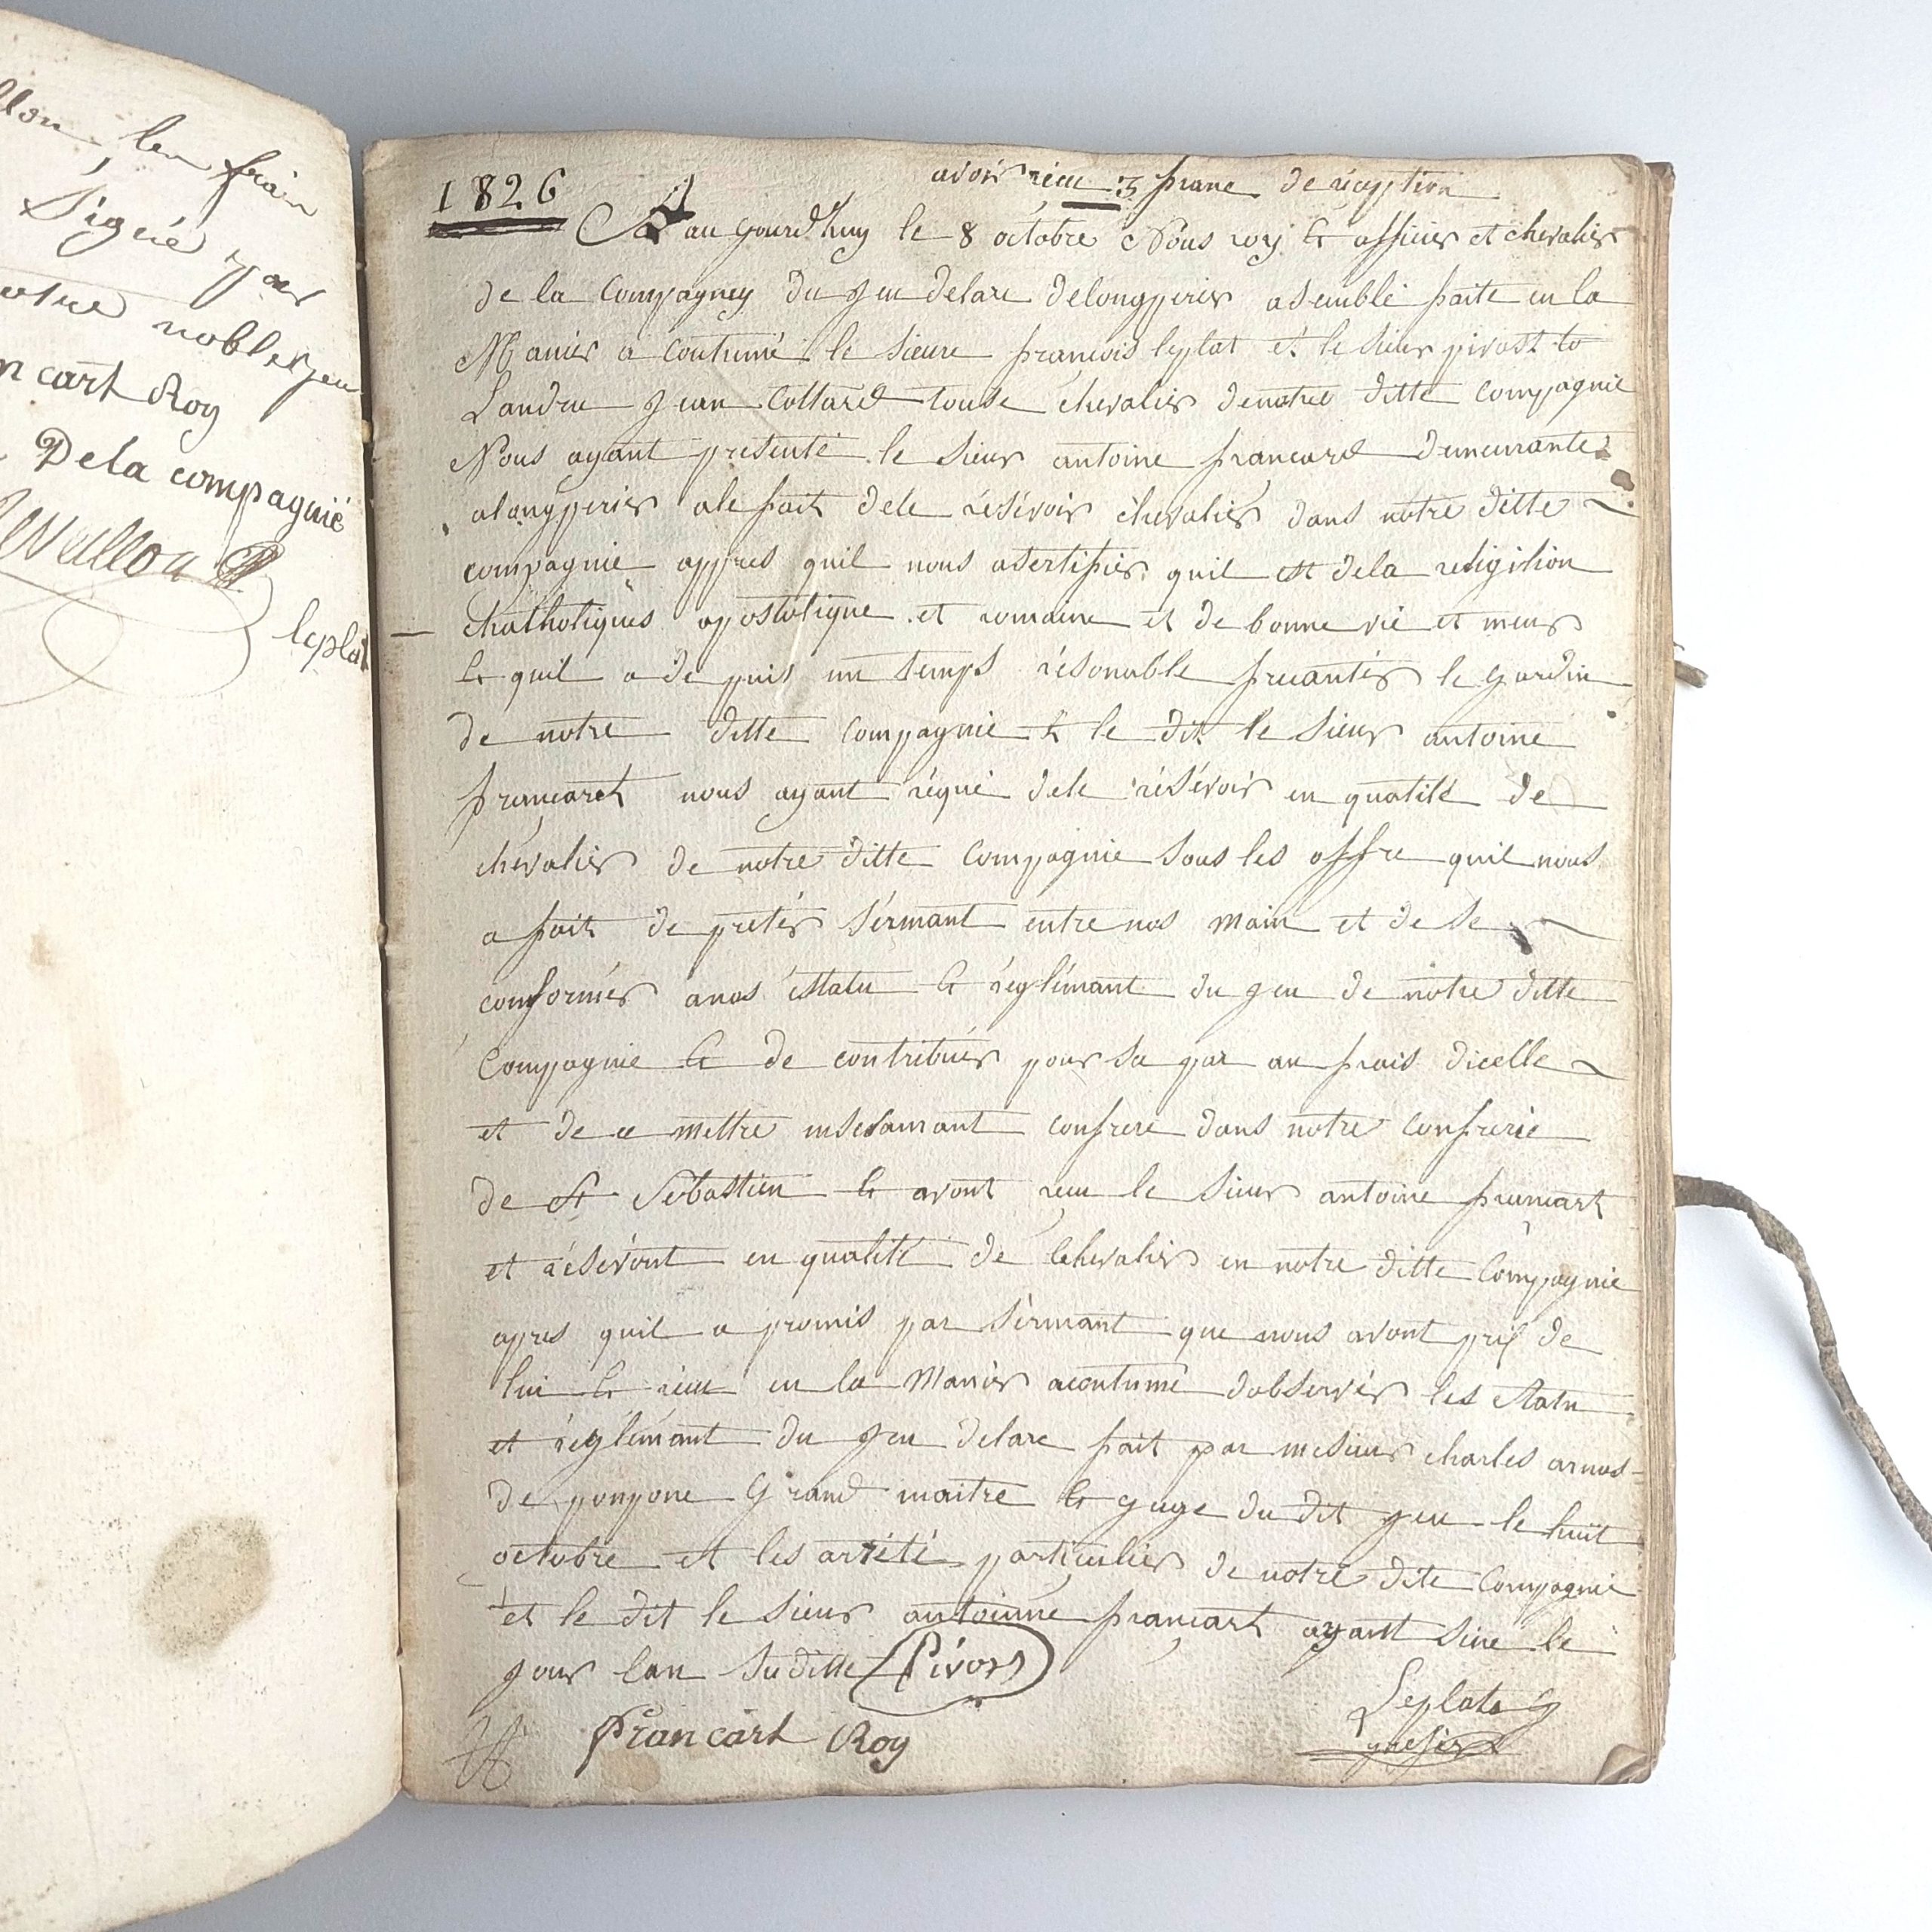 len frain
Signé par
notre noble jeu
cart Roy
De la compagnië
leplat
1826
avoir récu 3 franc de réception
au gourdhuy le 8 octobre Nous roy et officier et chevalier
de la Compagney du geu delare delongperier asemblé faite en la
Manier a coutumé le sieure francois leplat et le sieur pivost to
Landru Jean Collard touse chevalier denotre ditte compagnie
Nous ayant presenté le sieur antoine francard demeurante
alongperier ale fait dele résévoir chevalier dans notre ditte
compagnie appres quil nous asertifier quil est dela religition
Chatholiques appostolique et romaine et de bonne vie et meur
et quil a de puis un temps résonable frecantér le gardin
de notre ditte compagnie et le dit le sieur antoine
francart nous ayant réqui dele résévoir en qualité de
chevalier de notre ditte Compagnie sous les offre quil nous
a fait de pretér sérmant entre nos main et de se
conformér anos éstatu et réglémant du geu de notre ditte
Compagnie et de contribuér pour sa par au frais dicelle
et de ce mettre insesamant confrere dans notre confrerie
de St Sebastien et avont recu le sieur antoine francart
et résévont en qualité de Chevalier en notre ditte Compagnie
apres quil a promis par sérmant que nous avont pris de
lui et récu en la Maniér acoutumé dobservér les statu
et réglémant du geu delarc fait par mesieur charles arnos-
de ponpone Grand maitre et guge du dit geu le huit
octobre et les arrété particulier de notre dite Compagnie
et le dit le sieur antoinne francart ayant sine le
gour lan suditte Pivost
Francart Roy
Leplat
grefier